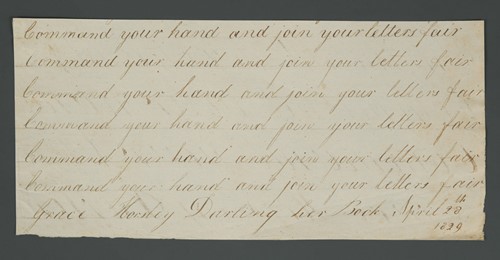 Command your hand and join your letters fair
Command your hand and join your letters fair
Command your hand and join your letters fair
Command your hand and join your letters fair
Command your hand and join your letters fair
Command your hand and join your letters fair
Grace Horsley Darling her Book April 28th
1829